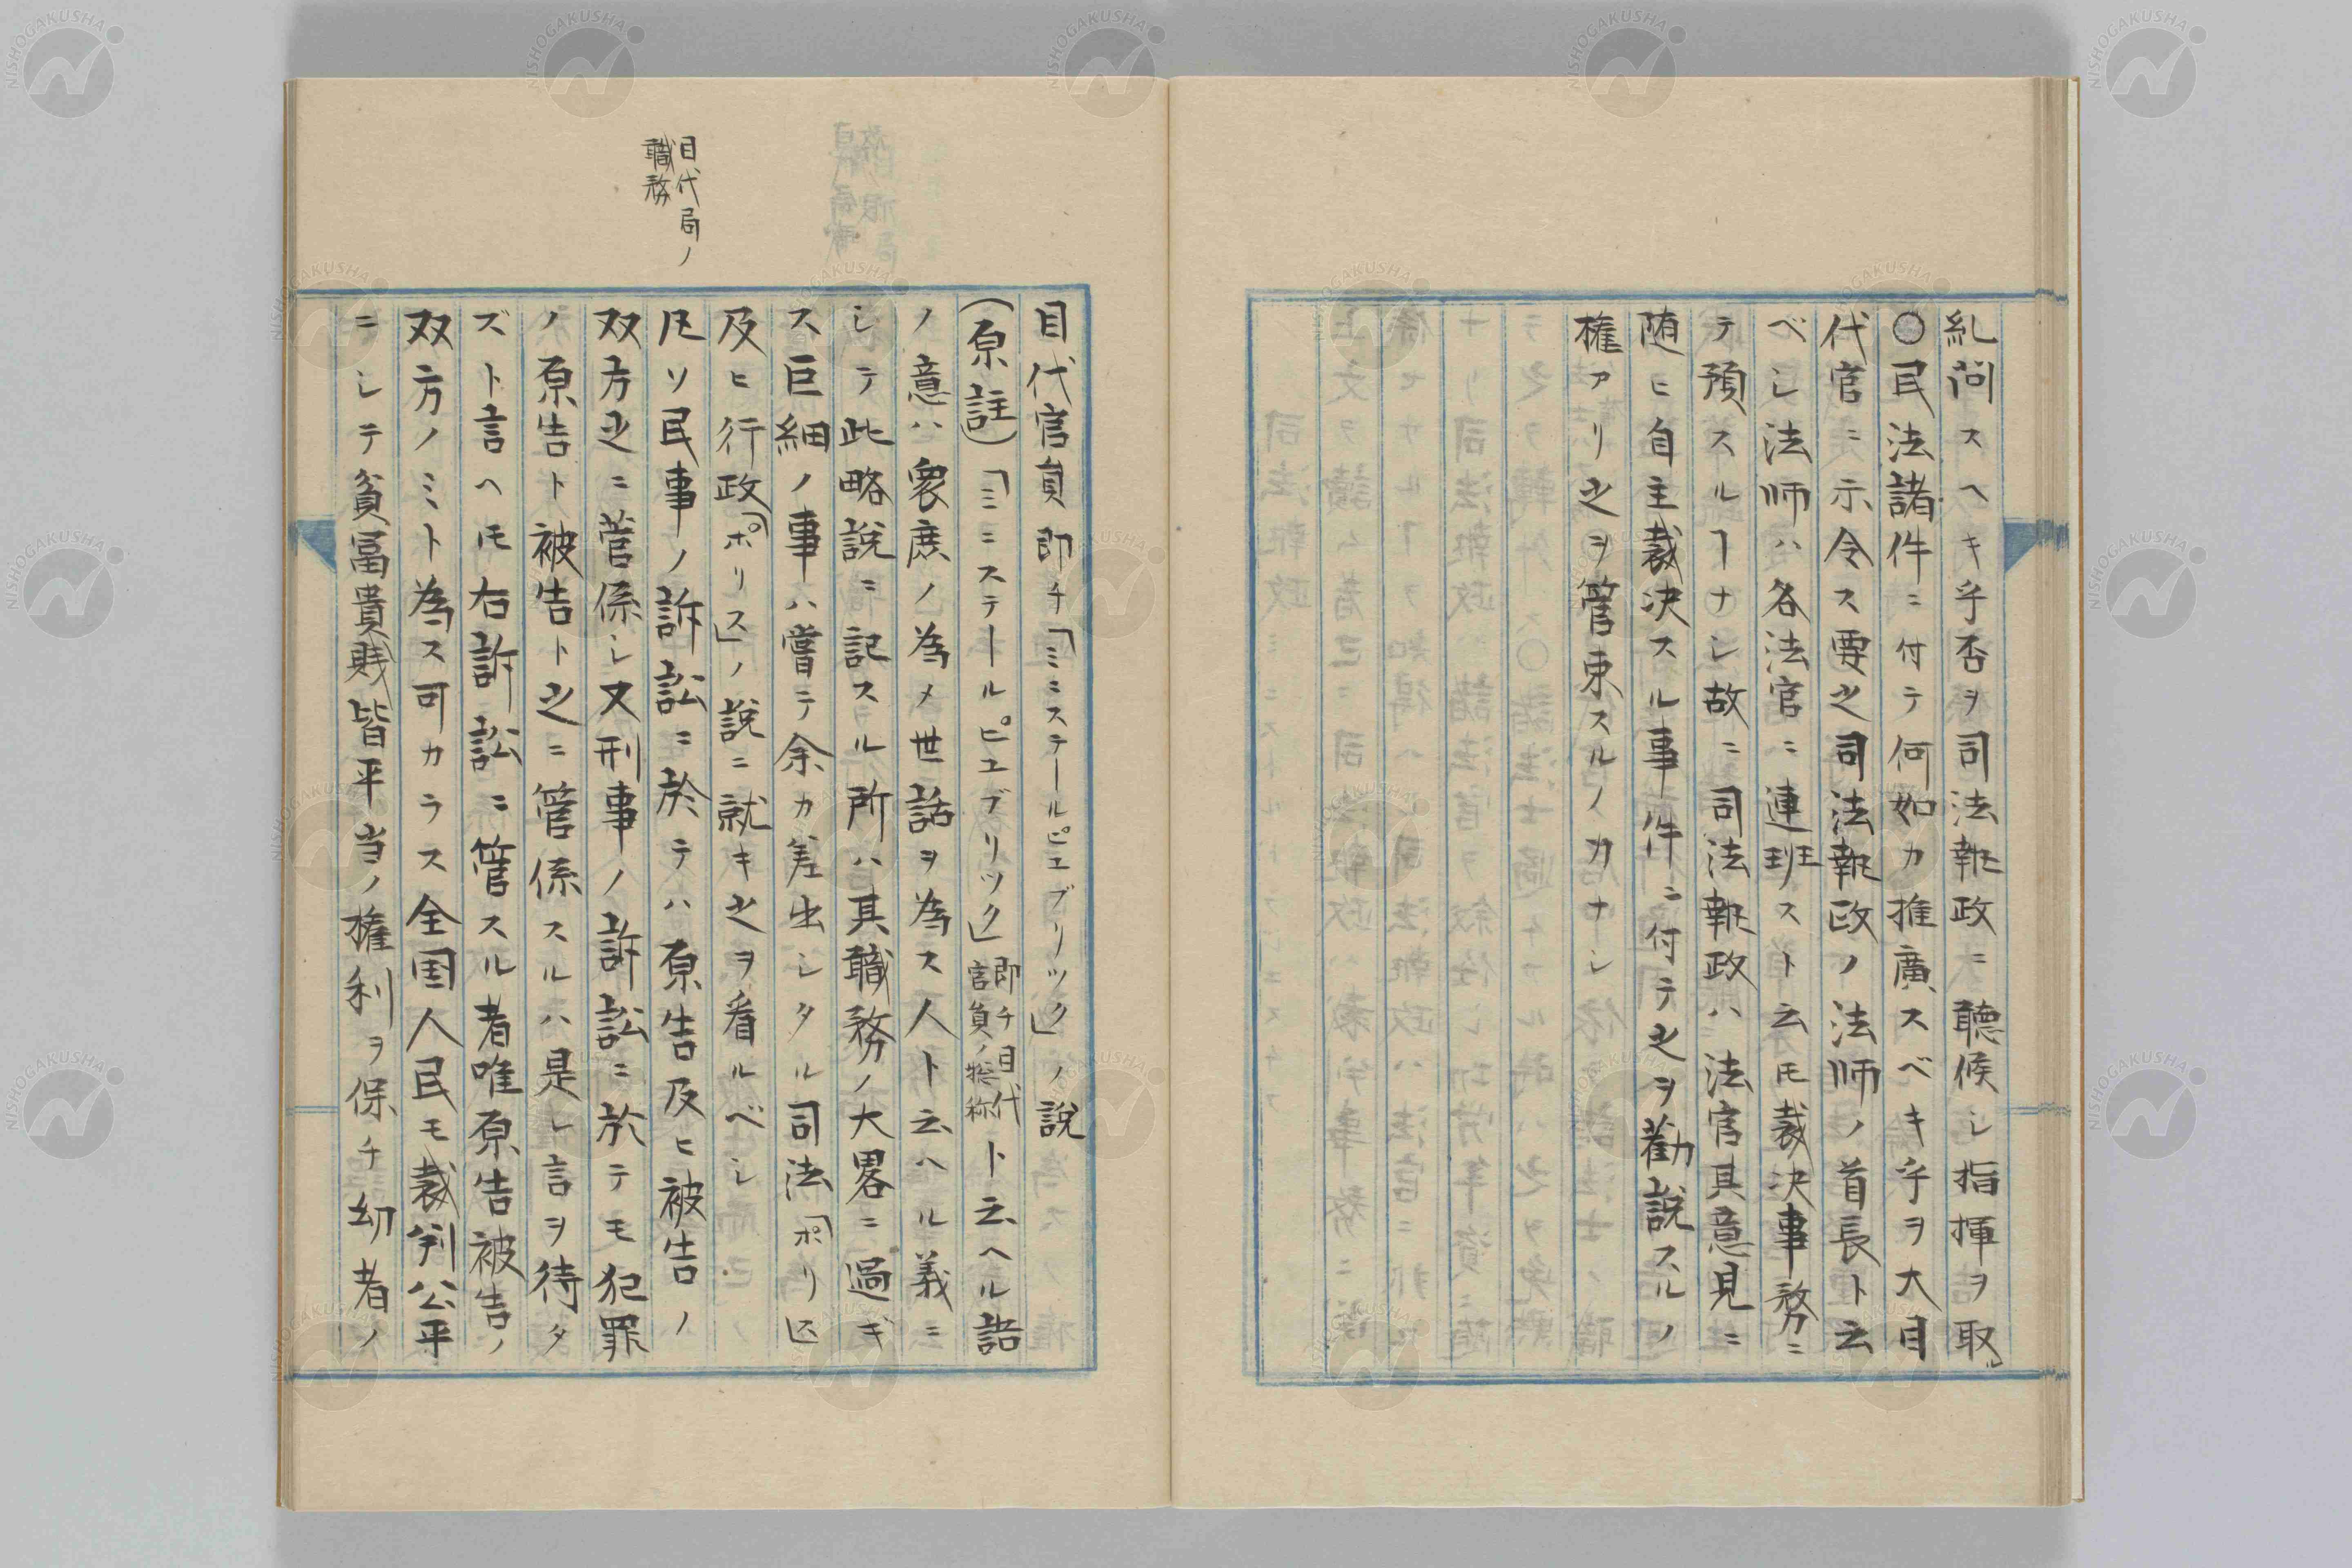 糺問スヘキ乎否ヲ司法執政ニ聴候シ指揮ヲ取ル
〇民法諸件ニ付テ何如カ推廣スベキ乎ヲ大目
代官ニ示令ス要之司法執政ノ法師ノ首長ト云
ベシ法師ハ各法官ニ連班スト云𪜈裁决事務ニ
テ預スルヿナシ故ニ司法執政ハ法官其意見ニ
随ヒ自主裁决スル事件ニ付テ之ヲ勸說スルノ
権アリ之ヲ管束スルノ力ナシ
目代官員即チ「ミニステールピユブリツク」ノ說
(原註)「ミニステールピユブリツク」即チ目代官負ノ揔称ト云ヘル語
ノ意ハ衆庶ノ為メ世話ヲ為ス人ト云ヘル義ニ
シテ此略說ニ記スル所ハ其職務ノ大畧ニ過ギ
ス巨細ノ事ハ嘗テ余カ差出シタル司法「ポリス」
及ヒ行政「ポリス」ノ說ニ就キ之ヲ看ルベシ
凡ソ民事ノ訴訟ニ於テハ原告及ヒ被告ノ
双方之ニ菅係シ又刑事ノ訴訟ニ於テモ犯罪
ノ原告ト被告ト之ニ管係スルハ是レ言ヲ待タ
ズト言ヘ𪜈右訴訟ニ管スル者唯原告被告ノ
双方ノミト為ス可カラス全国人民モ裁判公平
ニシテ貧富貴賎皆平当ノ権利ヲ保チ幼者ノ
目代局ノ
職務
NISHOGAKUSHA